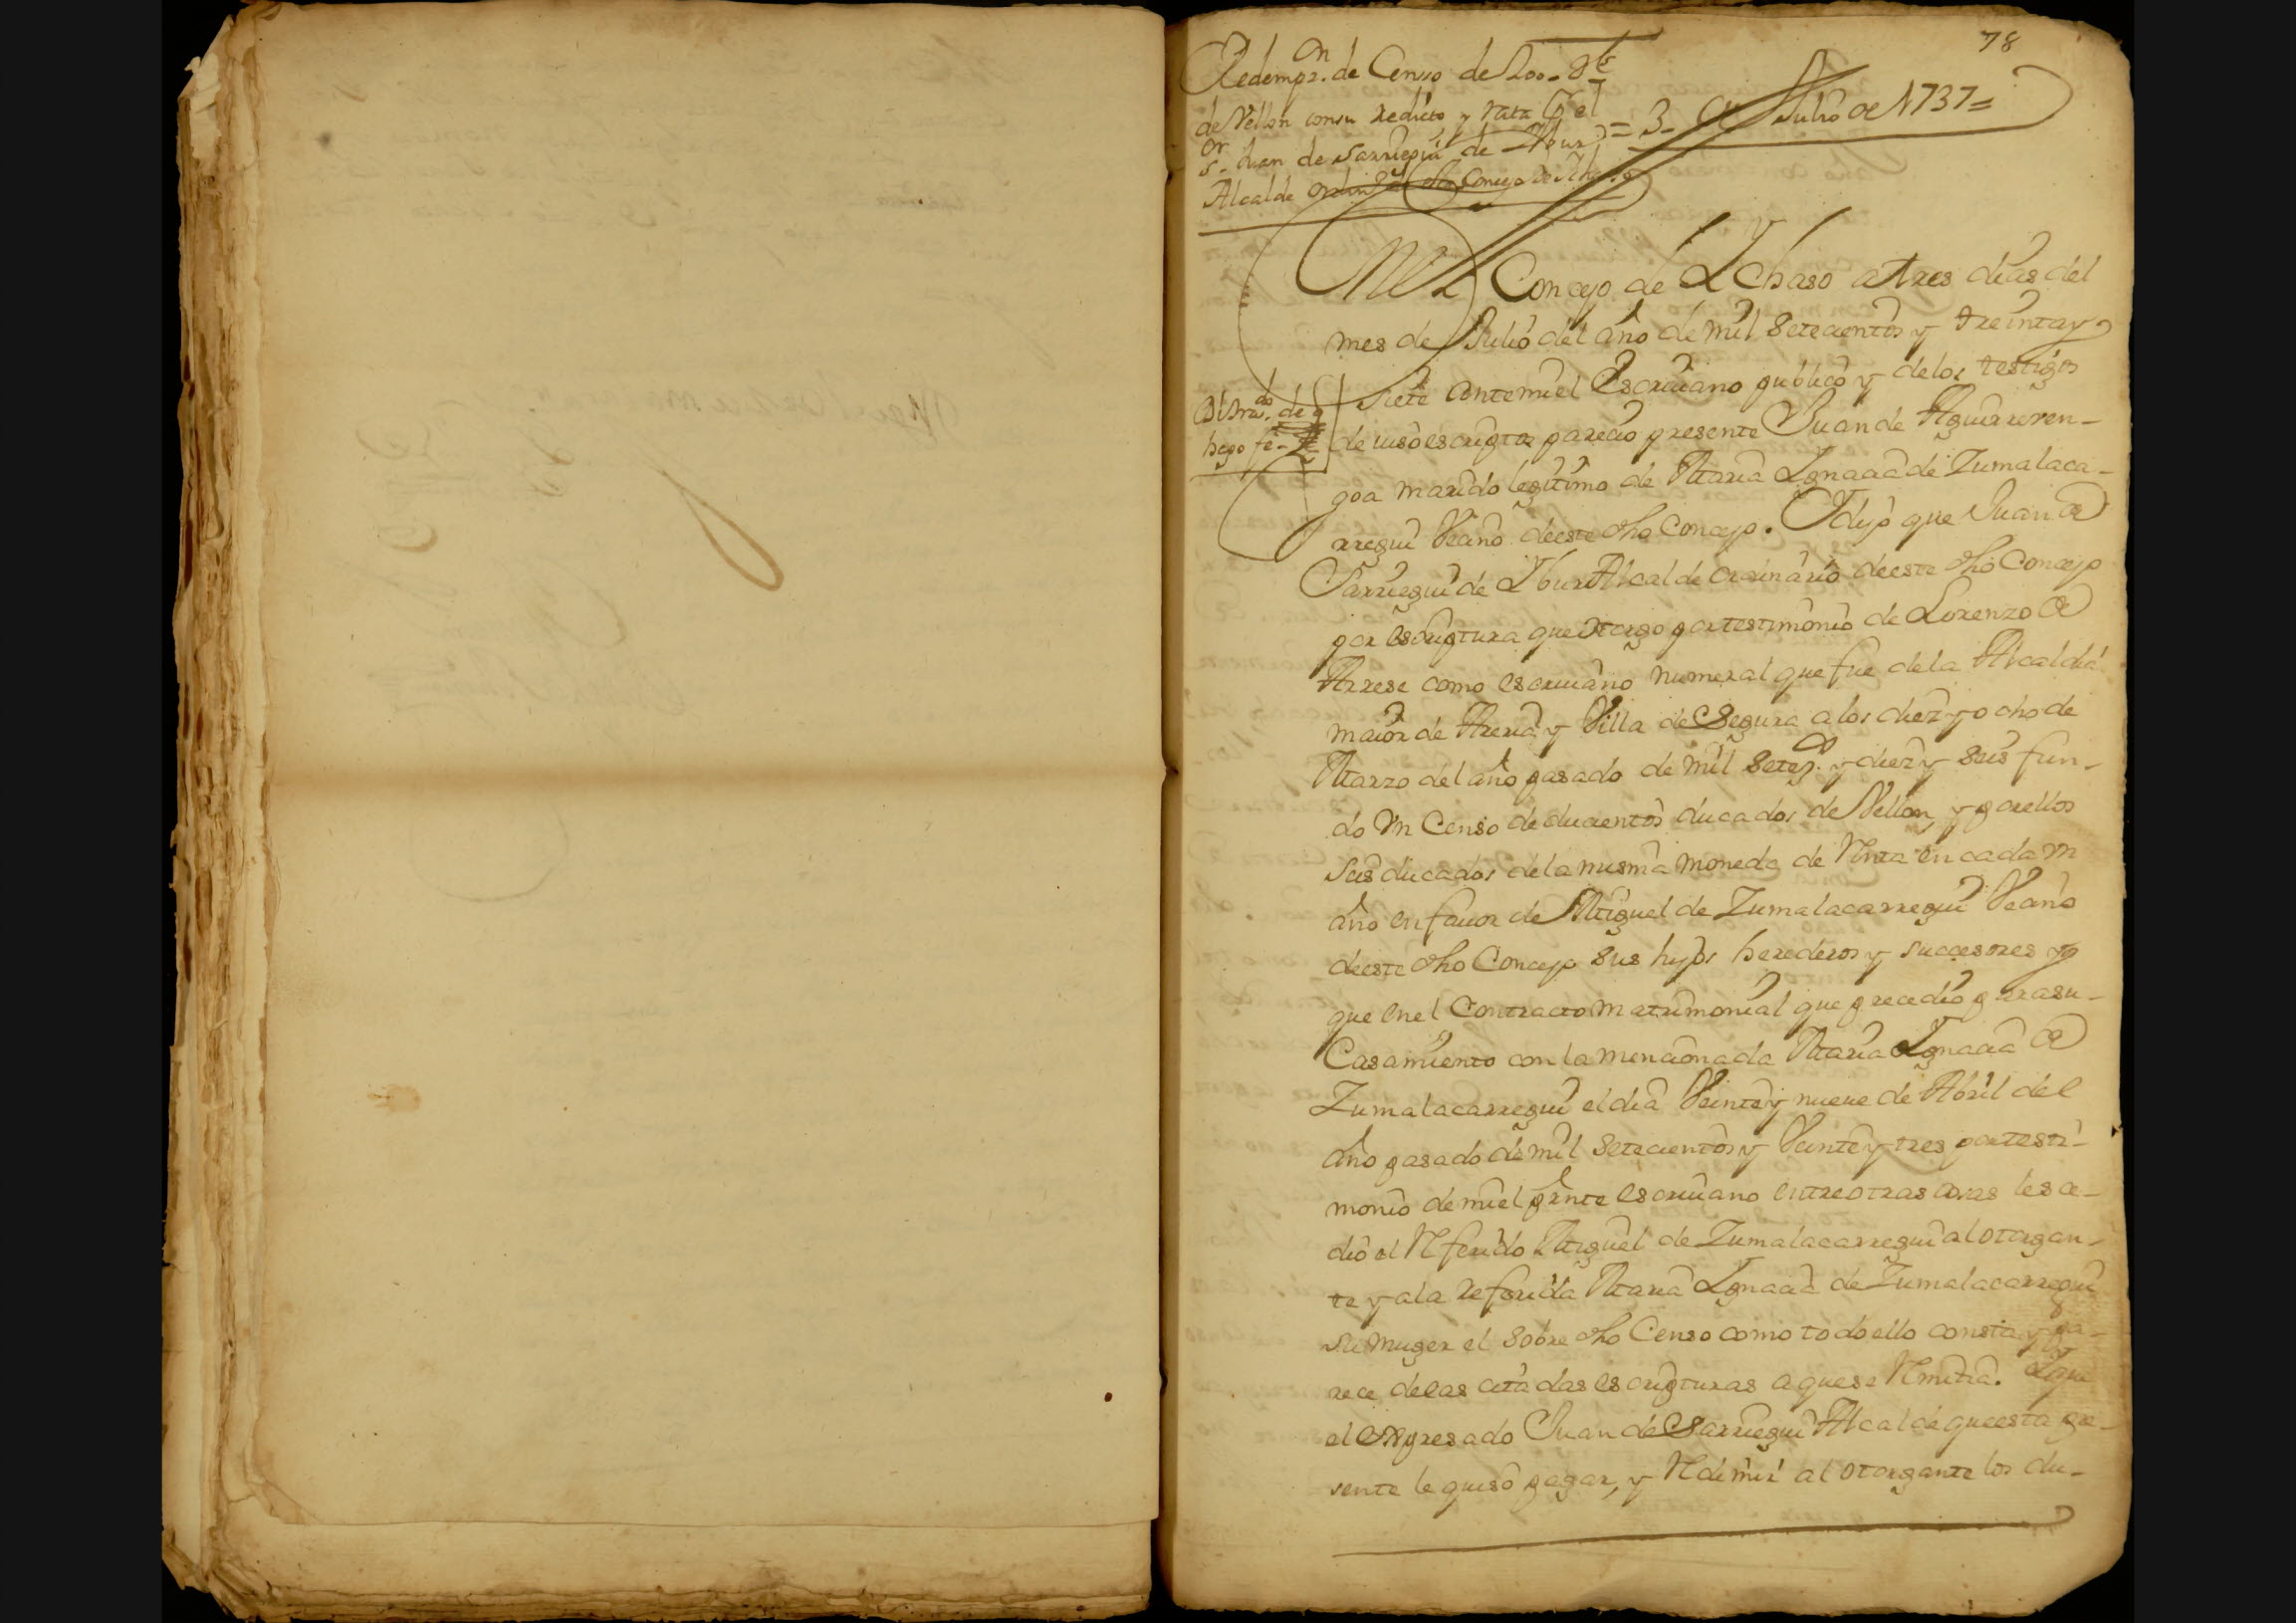 78
Redempon. de Censo de 200. ds
de Vellon con su Redicto y rata por el
sor. Juan de Sarriegui de Ybur = 3- de Julio de 1737=
Alcalde ordino.
En el Concejo de Ychaso a tres dias del
mes de Julio del año de mil setecientos y treinta y
siete ante mi el escriuano publico y de los testigos
de iuso escriptos parecio presente Juan de Aguirreren-
goa marido legitimo de Maria Ygnacia de Zumalaca-
rregui Vecino de este dho Concejo. Y dijo que Juan de
Sarriegui de Ybur Alcalde ordinario de este dho Concejo
por escriptura que otorgo por testimonio de Lorenzo de
Arrese como escriuano numeral que fue de la Alcaldia
maior de Areria y Villa de Segura a los diez y ocho de
Marzo del año pasado de mil setezos. y diez y seis fun-
do Vn Censo de ducientos ducados de Vellon, y por ellos
seis ducados de la misma moneda de Renta en cada Vn
año en fauor de Miguel de Zumalacarregui Vecino
de este dho Concejo sus hijos herederos y successores y
que en el Contracto matrimonial que precedio para su
Casamiento con la mencionada Maria Ygnacia de
Zumalacarregui el dia Veinte y nueue de Abril del
año pasado de mil setecientos y Veinte y tres por testi-
monio de mi el prnte escriuano entre otras cosas les ce-
dio el Referido Miguel de Zumalacarregui al otorgan-
te y a la referida Maria Ygnacia de Zumalacarregui
su muger el sobre dho Censo como todo ello consta y pa-
rece de las citadas escripturas a que se Remitia. Y que
el expresado Juan de Sarriegui Alcalde que esta pre-
sente le quiso pagar, y Redimir al otorgante los du-
hago fe-